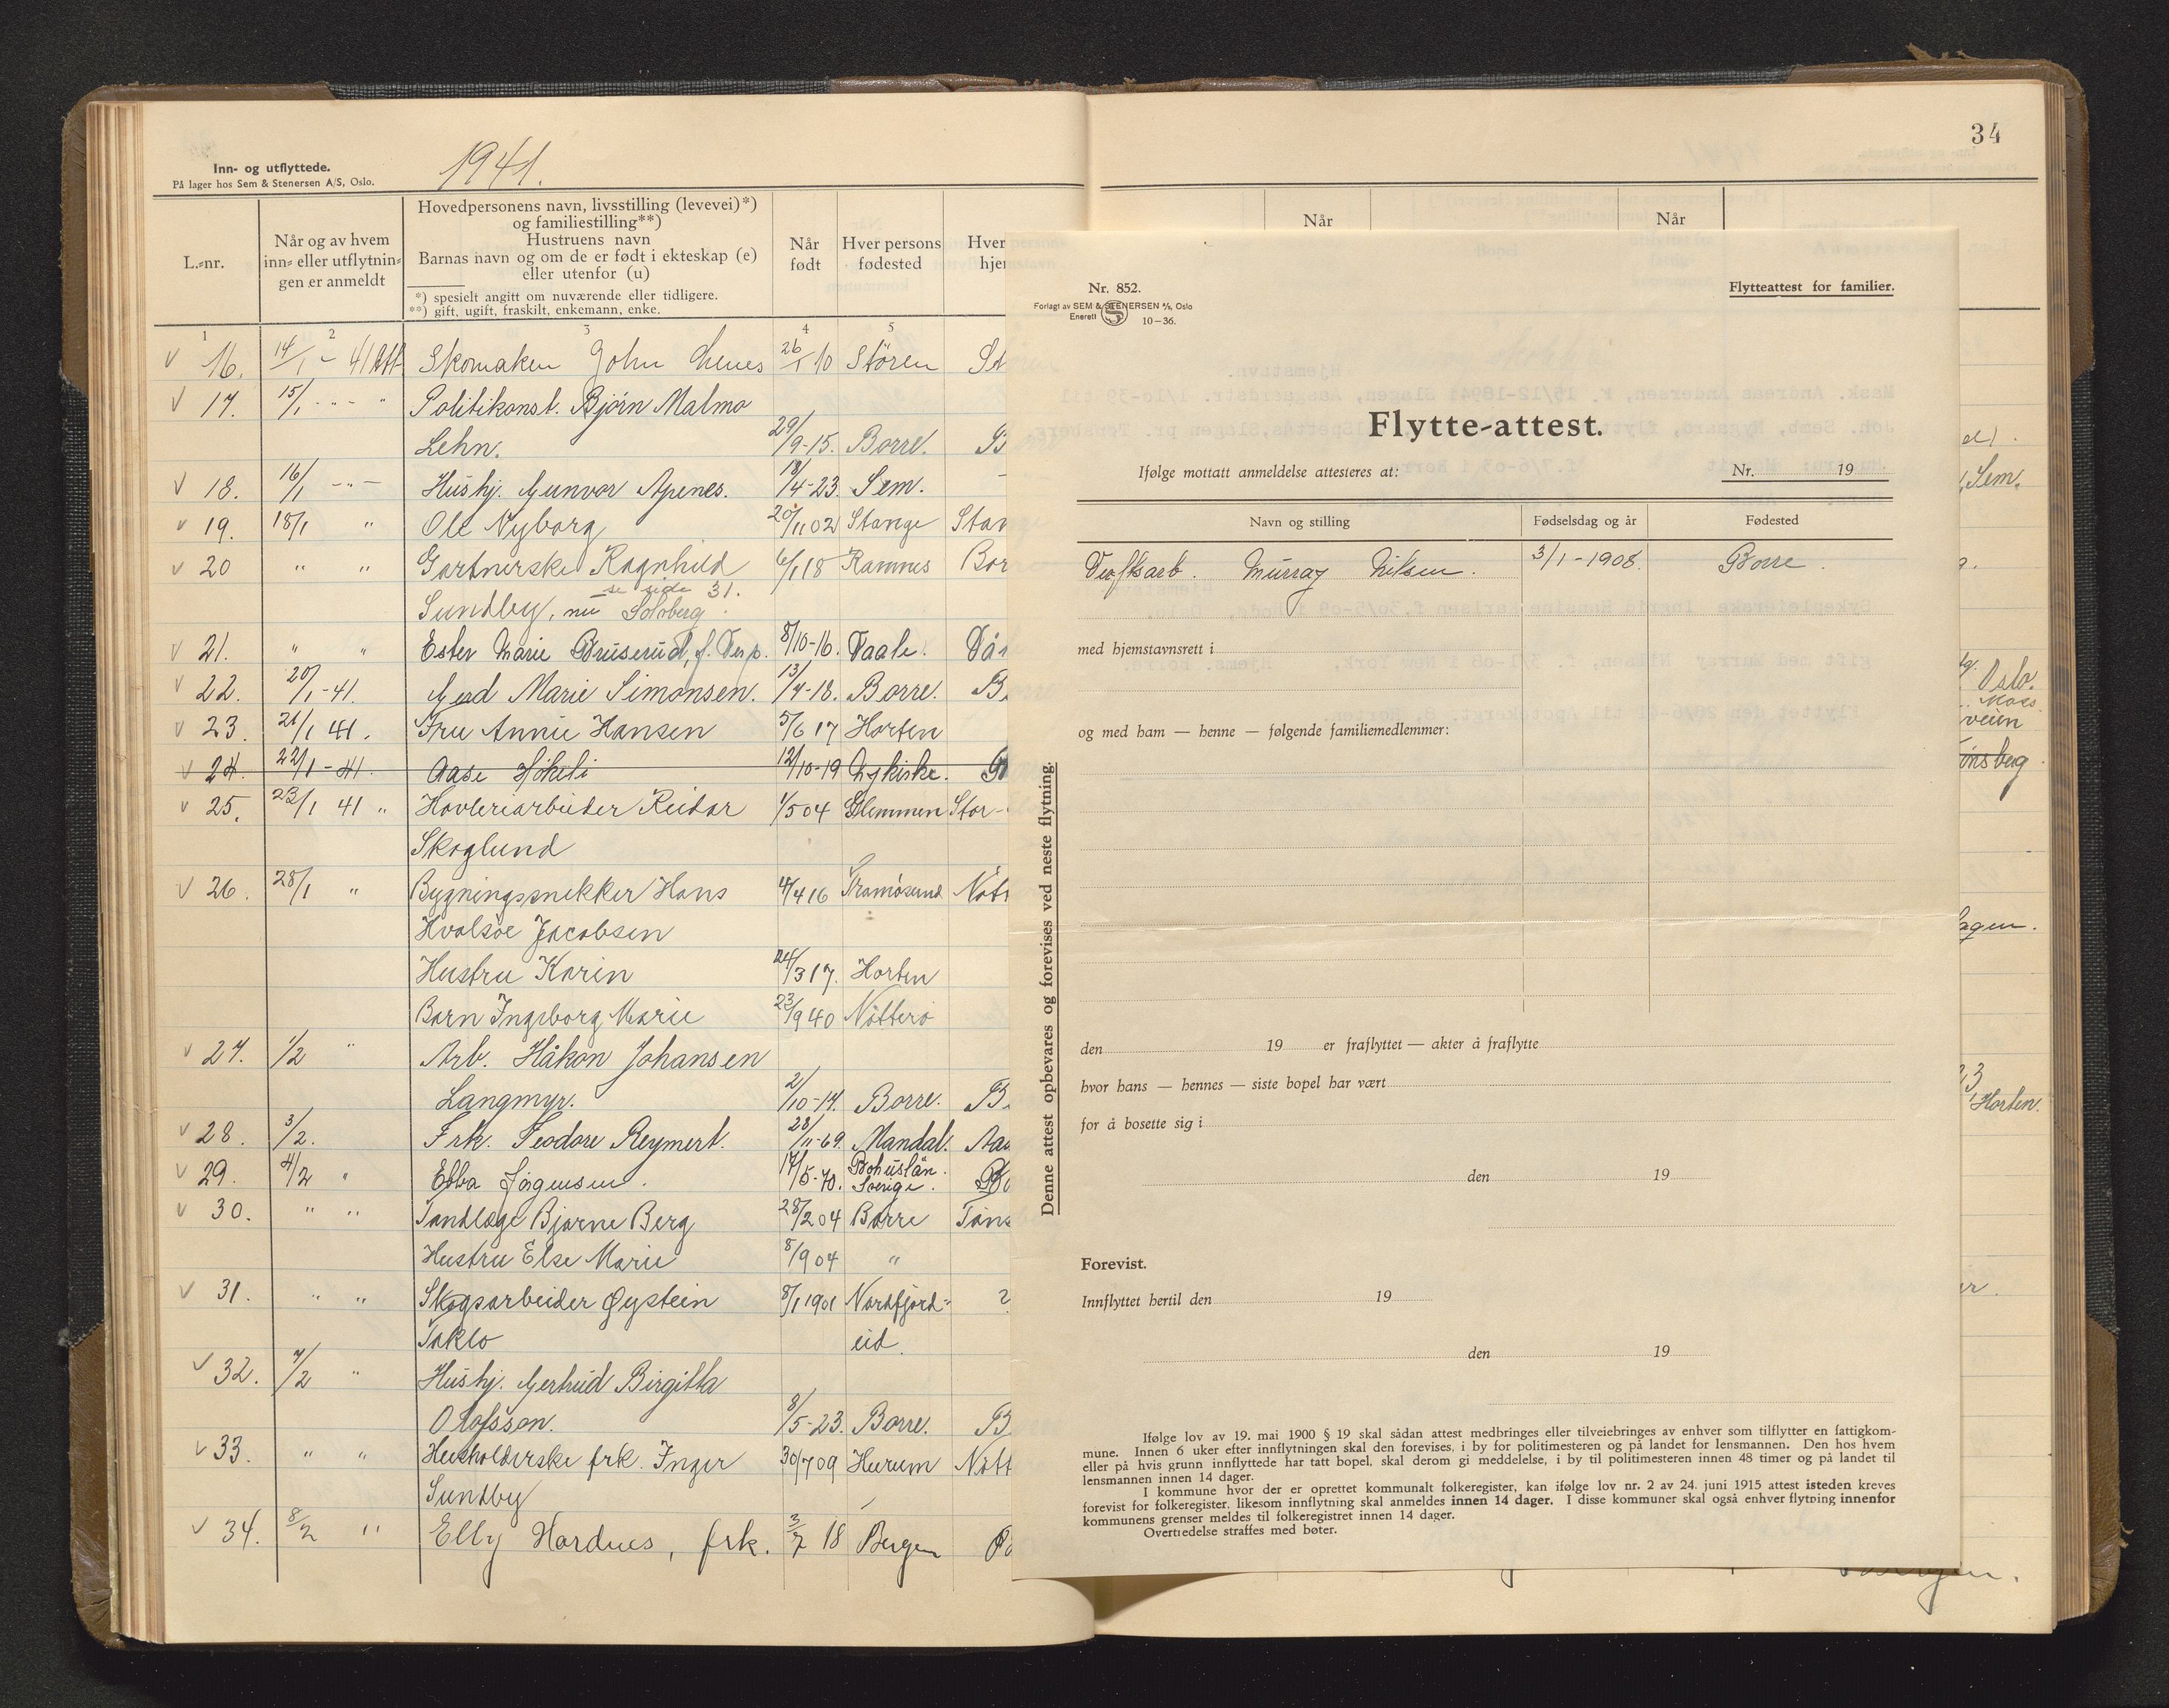 1941.
Inn- og utflyttede.
På lager hos Sem & Stenersen A/S, Oslo.
L.-nr.
Når og av hvem
inn- eller utflytnin-
gen er anmeldt
Hovedpersonens navn, livsstilling (levevei)*)
og familiestilling**)
Hustruens navn
Barnas navn og om de er født i ekteskap (e)
eller utenfor (u)
*) spesielt angitt om nuværende eller tidligere.
**) gift, ugift, fraskilt, enkemann, enke.
Når
født
Hver persons
fødested
Hver
hjem
1 2 3 4 5
16. 14/1 - 41 Att Skomaker John 26/1 10 Støren St
17. 15/1 - " - " Politikonst. Bjørn Malmo
Lehn. 29/9-15. Borre. B
18. 16/1 - " - Hushj. Gunvor Apenes. 18/4-23 Sem. -
19. 18/1 " Ole Nyborg 20/11 02 Stange Stan
20 " " Gartnerske Ragnhild 6/1 18 Ramnes Bor
se side 31.
Sundby, nu Solberg.
21. " " Ester Marie Bruserud, f. Verp. 8/10-16. Vaale. Vår
22. 20/1-41. Gerd Marie Simonsen. 13/4-18. Borre. B
23. 21/1 41. Fru Annie Hansen 5/6 17 Horten
24. 22/1-41. Aase Høkeli 12/10-19 Nykirke.
25. 23/1 41 " Høvleriarbeider Reidar 1/5 04 Glemmen Stor-
Skoglund
26. 28/1 " Bygningssnekker Hans 4/4 16 Nøtt
Hvalsøe Jacobsen
Hustru Karin 24/3 17. Horten
Barn Ingeborg Marie 23/9 40 Nøtterø
27. 1/2 " Arb. Håkon Johansen
Langmyr. 2/10-14. Borre. B.
28. 3/2. Frk. Teodore Reymert. 28/11-69. Mandal. Aa
29. 4/2 " Ebba Jørgensen. 17/5-70. Bohuslän. Sverige.
30. " " Tandlæge Bjarne Berg 28/2 04 Borre Tøns
Hustru Else Marie 8/9 04 "
31. " " Skogsarbeider Øystein 8/1 1901 Nordfjord- ?
Taklo eid.
32. 7/2 " Hushj. Gertrud Birgitta
Olofsson. 8/5-23. Borre. B
33. " " Husholderske frk. Inger 30/7 09 Hurum Nøtt
Sundby
34. 8/2 " Elly Hordnes, frk. 3/7 18 Bergen
34
Når
Når
Nr. 852.
Forlagt av SEM & STENERSEN A/S, Oslo
Enerett S 10—36.
Flytteattest for familier.
Flytte-attest.
Ifølge mottatt anmeldelse attesteres at:
Nr. 19
Navn og stilling
Fødselsdag og år
Fødested
Verftsarb. Murray Nilsen. 3/1-1908. Borre.
med hjemstavnsrett i
og med ham — henne — følgende familiemedlemmer:
Denne attest opbevares og forevises ved neste flytning.
den 19 er fraflyttet — akter å fraflytte
hvor hans — hennes — siste bopel har vært
for å bosette sig i
den 19
Forevist.
Innflyttet hertil den 19
den 19
Ifølge lov av 19. mai 1900 § 19 skal sådan attest medbringes eller tilveiebringes av enhver som tilflytter en fattigkom-
mune. Innen 6 uker efter innflytningen skal den forevises, i by for politimesteren og på landet for lensmannen. Den hos hvem
eller på hvis grunn innflyttede har tatt bopel, skal derom gi meddelelse, i by til politimesteren innen 48 timer og på landet til
lensmannen innen 14 dager.
I kommune hvor der er oprettet kommunalt folkeregister, kan ifølge lov nr. 2 av 24. juni 1915 attest isteden kreves
forevist for folkeregister, likesom innflytning skal anmeldes innen 14 dager. I disse kommuner skal også enhver flytning innenfor
kommunens grenser meldes til folkeregistret innen 14 dager.
Overtredelse straffes med bøter.
Sem.
Oslo.
veien
ønsberg
agen.
Horten.